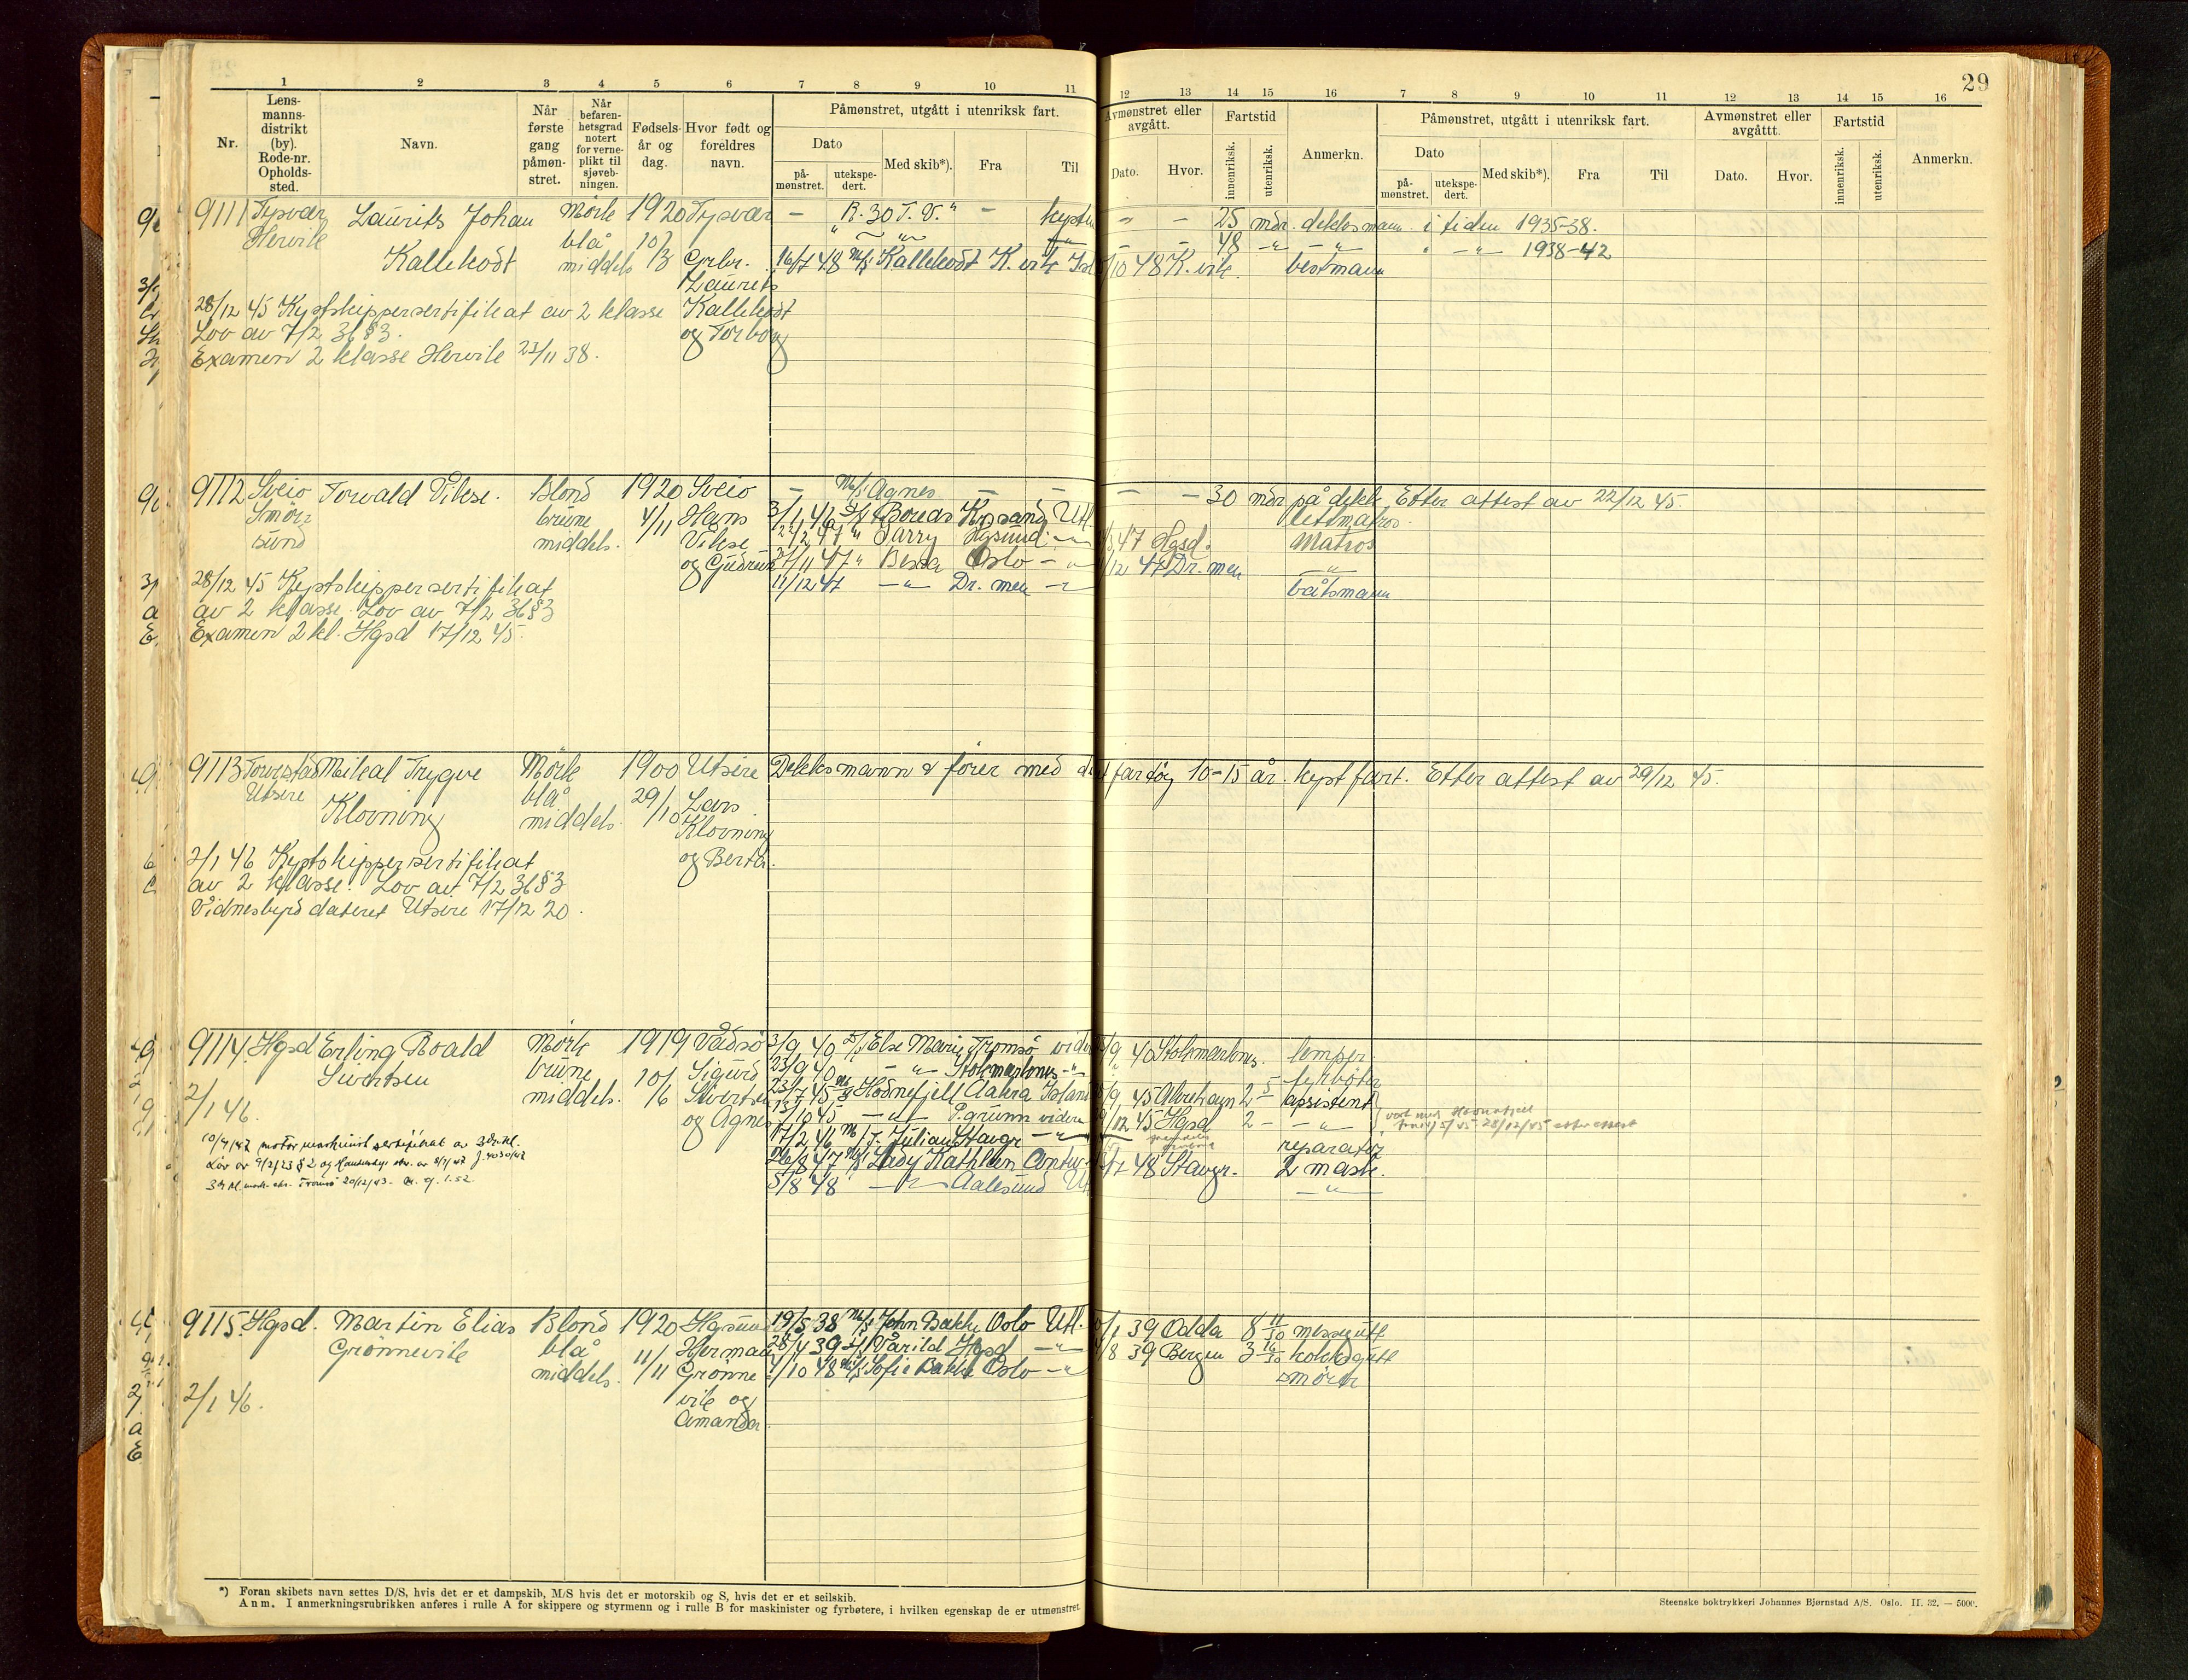 29
1 2 3 4 5 6 7 8 9 10 11 12 13 14 15 16 7 8 9 10 11 12 13 14 15 16
Nr.
Lens-
manns-
distrikt
(by).
Rode-nr.
Opholds-
sted.
Navn.
Når
første
gang
påmøn-
stret.
Når
befaren-
hetsgrad
notert
for verne-
plikt til
sjøveb-
ningen.
Fødsels-
år og
dag.
Hvor født og
foreldres
navn.
Påmønstret, utgått i utenriksk fart.
Dato
på-
mønstret.
utekspe-
dert.
Med skib*).
Fra
Til
Avmønstret eller
avgått.
Dato.
Hvor.
Fartstid
innenriksk.
utenriksk.
Anmerkn.
Påmønstret, utgått i utenriksk fart.
Dato
på-
mønstret.
utekspe-
dert.
Med skib*).
Fra
Til
Avmønstret eller
avgåttt.
Dato.
Hvor.
Fartstid
innenriksk.
utenriksk.
Anmerkn.
9111 Tysvær Laurits Johan Mörk 1920 Tysvær – R. 30 T. V." – kysten – – 25 mdr. dekksmann i tiden 1935-38.
Hervik blå 10/ 48 –"– –"– " –"– 1938-42
Kallekodt middels 3 Grbr. 16/7 48 M/S Kallekodt K. vik Isl /10 48 K. vik. bestmann
Laurits
28/12 45 Kystskippersertifikat av 2 klasse Kallekodt
Lov av 7/2 36 § 3. og Torborg
Examen 2 klasse Hervik 23/11 38.
9112 Sveio Torvald Vikse. Blond 1920 Sveio – M/S Agnes – – – – 30 mdr på dekk. Etter attest av 22/12 45.
Smör brune 4/11 Hans 3/1 46 Boreas Kr.sand Utl. lettmatros.
sund middels. Vikse 22/2 47 " Garry Hgsund –"– 47 Hgsd. Matros
og Gudrun 24/11 47 " Bessa Oslo –"– /12 47 Dr. men –"–
28/12 45 Kystskippersertifikat 11/12 47 –"– Dr. men –"– båtsmann
av 2 klasse. Lov av 7/2 36 § 3
Examen 2 kl. Hgsd 17/12 45.
9113 Torvestad Mikal Trygve Mörk 1900 Utsire Dekksmann & förer med fartöy 10-15 år. kystfart. Etter attest av 29/12 45.
Utsire blå 29/ Lars
Klovning middels. 10 Klovning
2/1 46 Kystskippersertifikat og Berta.
av 2 klasse. Lov av 7/2 36 § 3
Vidnesbyrd dateret Utsire 17/12 20.
9114. Hgsd Erling Roald Mörk 1919 Vadsö 3/9 40 Else Marie Tromsö /9 40 Stokmarknes. lemper
Sivertsen brune 10/ Sigurd 23/9 40 –"– Stokmarknes –"– fyrböter
middels. 6 Sivertsen 23/7 45 M/S Hodnefjell Aakra Island /9 45 Akrehavn 2 5 assistent
2/1 46. og Agnes 13/10 45 –"– P.grunn videre /12 45 Hgsd 2 – –"–
10/4/47 motormaskinist sertifikat av 3dje kl. 17/2 46 M/T. Julian Stavgr –"– reparatör
Lov av 9/2/23 § 2 26/8 47 M/S Lady Kathleen Antw. 48 Stavgr. 2 mask.
5/8 48 –"– Aalesund –"–
9115. Hgsd. Martin Elias Blond 1920 Hgsund 19/5 38 M/S John Bakke Oslo Utl. /1 39 Odda 8 11/30 messegutt
Grönnevik blå 11/ Herman 28/4 39 Vårild Hgsd –"– /8 39 Bergen 3 16/30 kokksgutt
middels. 11 Grönne 4/10 48 M/S Sofie Bakke Oslo –"– smörer
2/1 46. vik og
Amanda.
*) Foran skibets navn settes D/S, hvis det er et dampskib, M/S hvis det er motorskib og S, hvis det er et seilskib.
Anm. I anmerkningsrubrikken anføres i rulle A for skippere og styrmenn og i rulle B for maskinister og fyrbøtere, i hvilken egenskap de er utmønstret
Steenske boktrykkeri Johannes Bjørnstad A/S. Oslo. II. 32. — 5000.